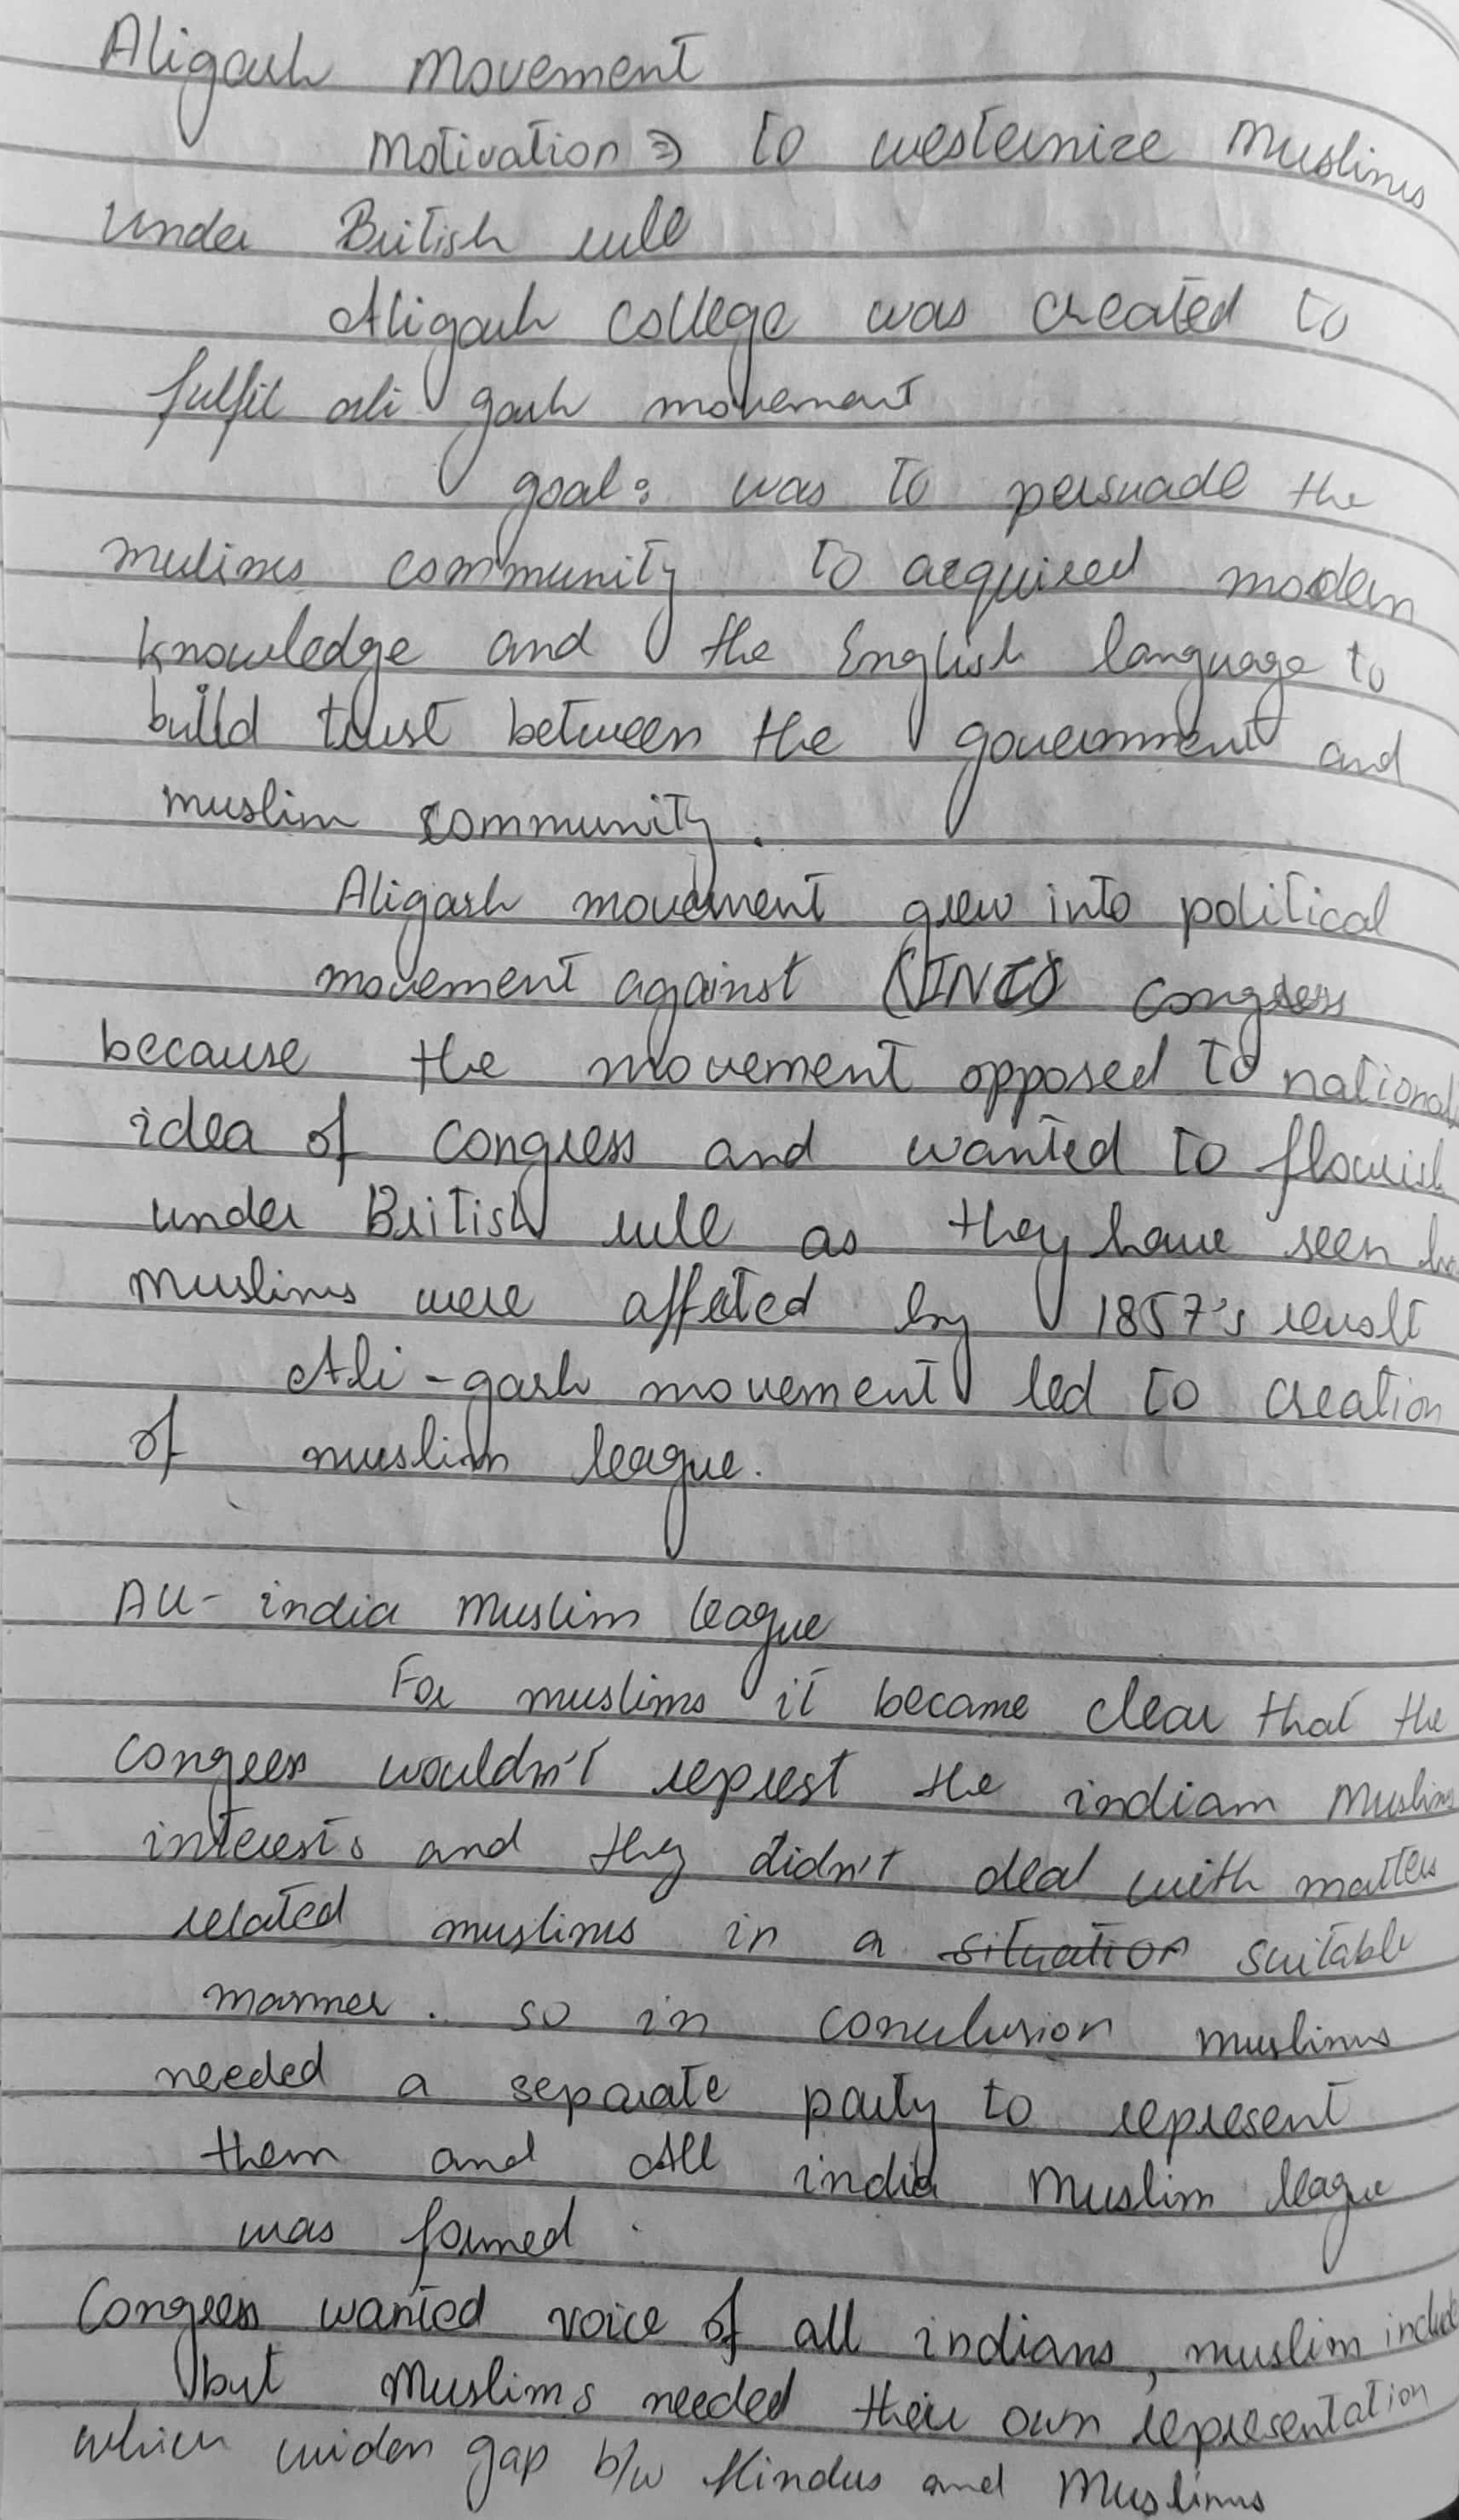 Aligarh Movement
Motivation ⇒ to westernize Muslims
under British rule
Aligarh college was created to
fulfil ali garh movement
goal: was to persuade the
mulims community to acquired modern
knowledge and the English language to
build trust between the government and
muslim community.
Aligarh movement grew into political
movement against congress
because the movement opposed to national
idea of congress and wanted to flourish
under British rule as they have seen
muslims were affected by 1857's revolt
Ali-garh movement led to creation
of muslim league.
All-india Muslim league
For muslims it became clear that the
congress wouldn't represt the indian Muslims
interests and they didn't deal with matters
related muslims in a situation suitable
manner. so in conclusion muslims
needed a separate party to represent
them and All india Muslim league
was formed.
Congress wanted voice of all indians, muslim include
but Muslims needed their own representation
which widen gap b/w Hindus and Muslims